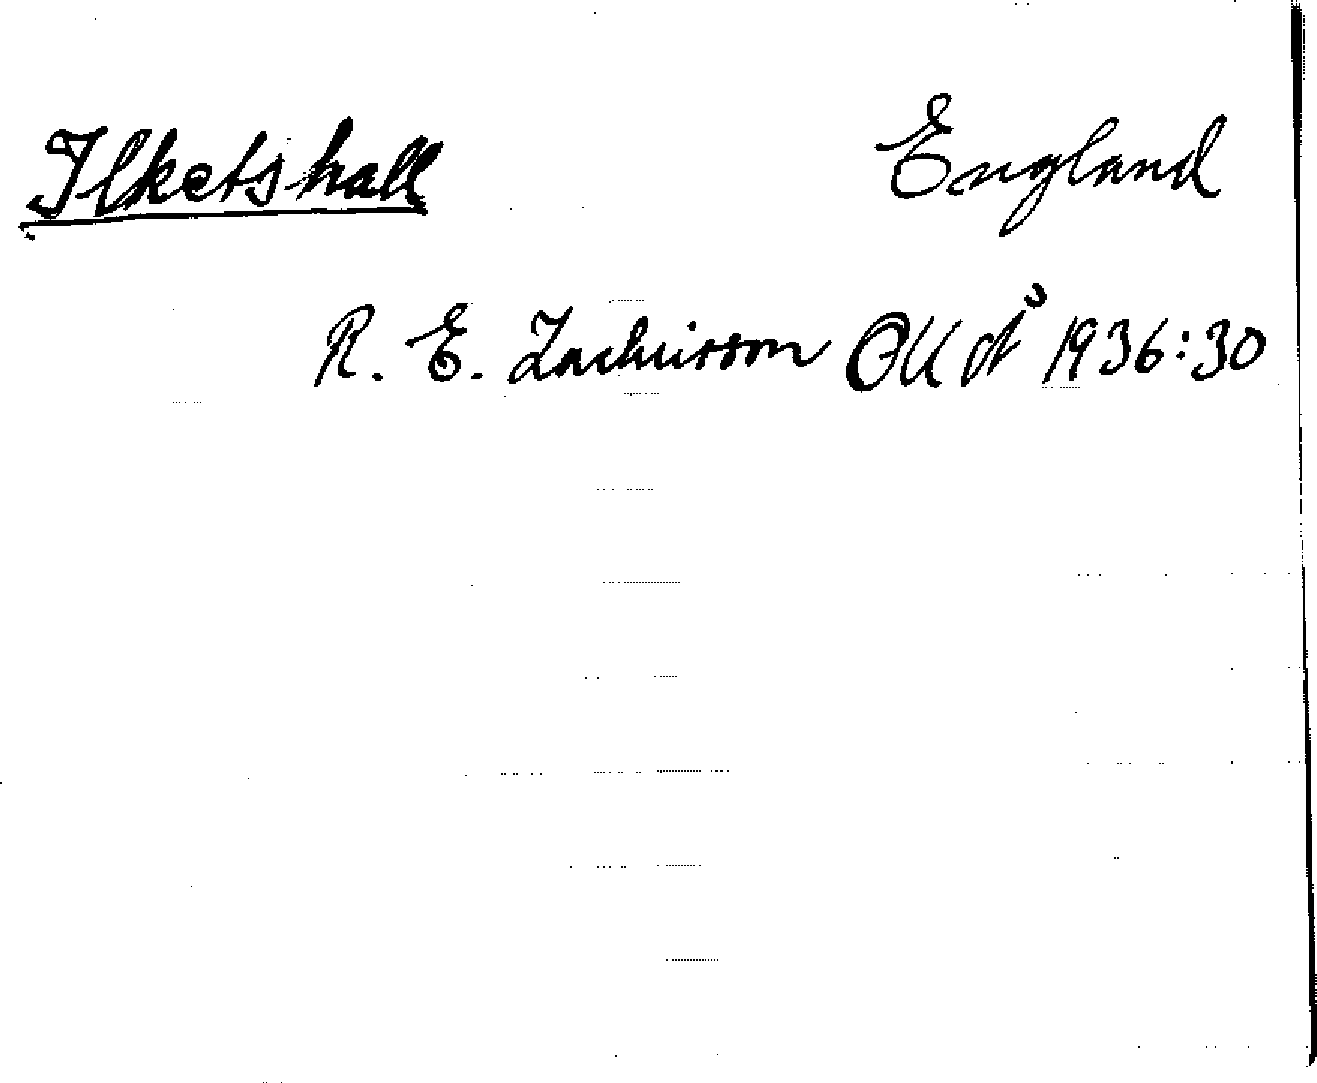 Ilketshall England
R. E. Zachrisson OUÅ 1936:30